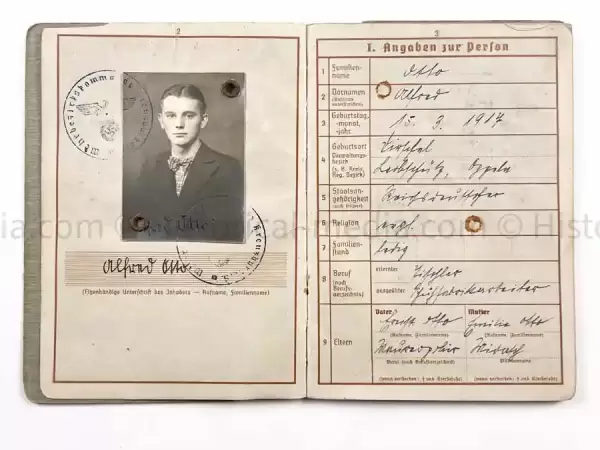 2
Wehrbezirkskommando
Kreuzburg O.S.
Alfred Otto
Alfred Otto
(Eigenhändige Unterschrift des Inhabers — Rufname, Familienname)
3
I. Angaben zur Person
1 Familien-
name
Otto
2 Vornamen
(Rufname
unterstreichen)
Alfred
3 Geburtstag,
-monat,
-jahr
15. 3. 1917
4 Geburtsort
Verwaltungs-
bezirk
(z. B. Kreis,
Reg.-Bezirk)
Leobschütz, Oppeln
5 Staatsan-
gehörigkeit
(auch frühere)
Reichsdeutscher
6 Religion
evgl.
7 Familien-
stand
ledig
8 Beruf
(nach
Berufs-
verzeichnis)
erlernter
Tischler
ausgeübter
9 Eltern
Vater
Otto
(Rufname, Familienname)
Maurerpolier
Beruf (nach Berufsverzeichnis)
(wenn verstorben: † und Sterbejahr)
Mutter
Emilie Otto
(Rufname, Familienname)
Mädchenname
(wenn verstorben: † und Sterbejahr)
ia.com © Historical-media.com © Histo